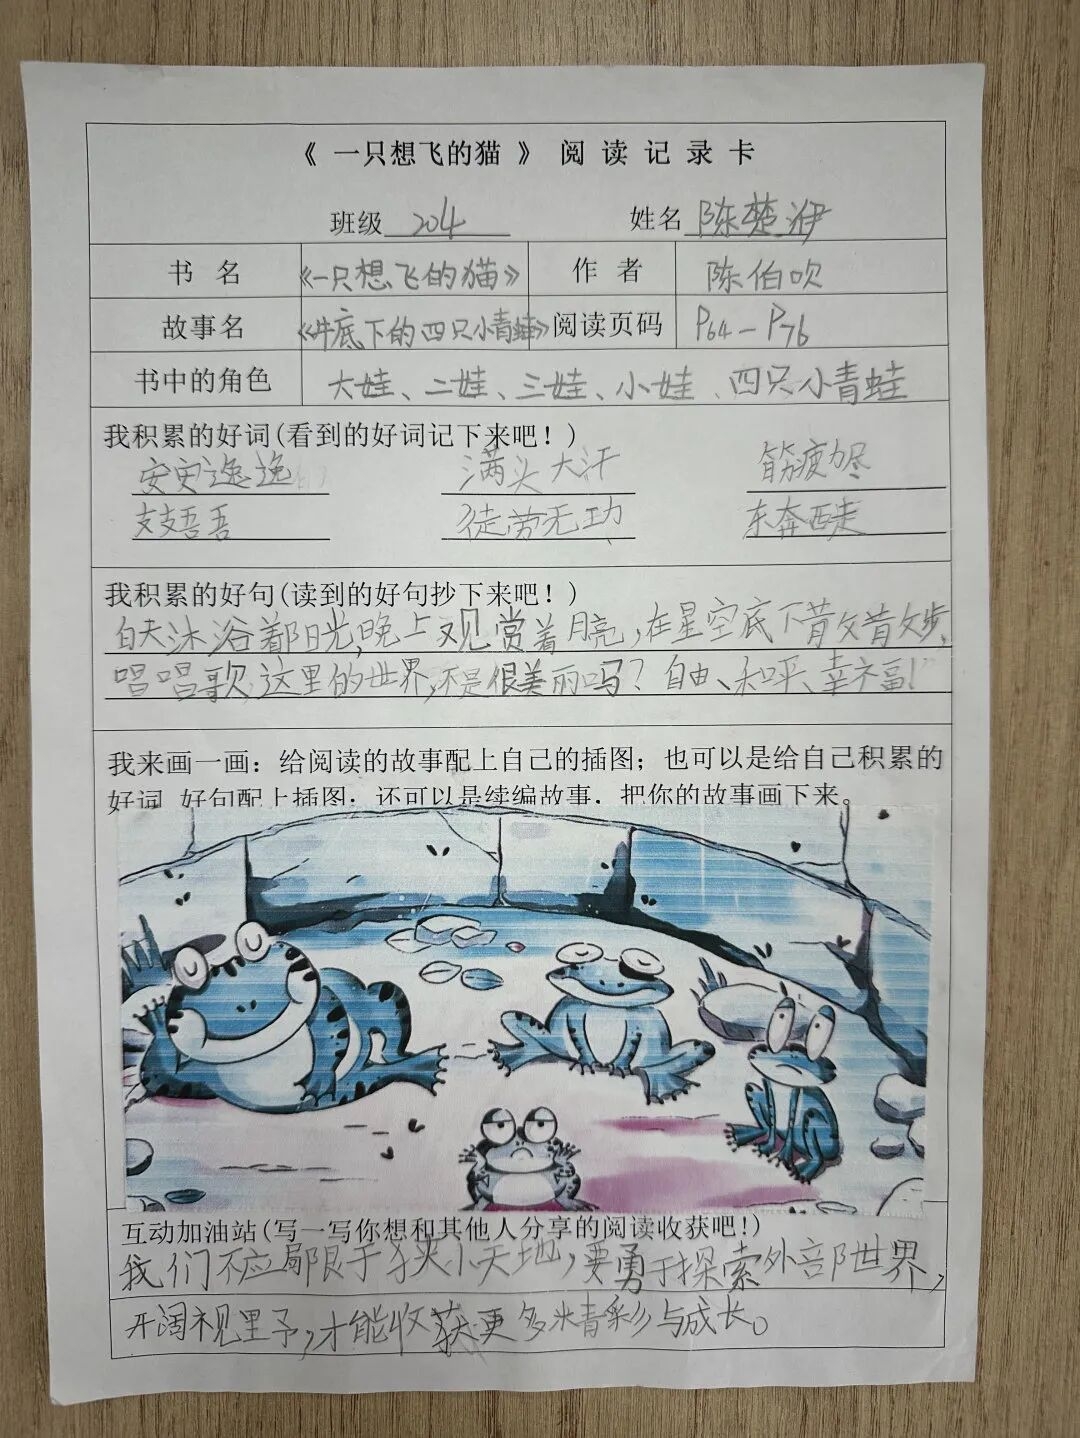 《 一只想飞的猫 》 阅 读 记 录 卡
班级 204 姓名 陈楚洢
书 名 《一只想飞的猫》 作 者 陈伯吹
故事名 《井底下的四只小青蛙》 阅读页码 P64—P76
书中的角色 大娃、二娃、三娃、小娃、四只小青蛙
我积累的好词(看到的好词记下来吧！)
安安逸逸 满头大汗 筋疲力尽
支支吾吾 徒劳无功 东奔西走
我积累的好句(读到的好句抄下来吧！)
白天沐浴着阳光,晚上观赏着月亮,在星空底下散散步、
唱唱歌,这里的世界,不是很美丽吗？自由、和平、幸福!"
我来画一画：给阅读的故事配上自己的插图；也可以是给自己积累的
好词 好句配上插图；还可以是续编故事，把你的故事画下来。
互动加油站(写一写你想和其他人分享的阅读收获吧!)
我们不应局限于狭小天地,要勇于探索外部世界,
开阔视野,才能收获更多精彩与成长。